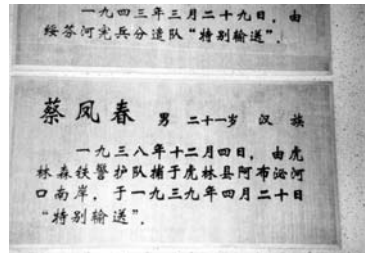 一九四三年三月二十九日，由
绥芬河宪兵分遣队“特别输送”。
蔡凤春 男 二十一岁 汉 族
一九三八年十二月四日，由虎
林森铁警护队捕于虎林县阿布沁河
口南岸，于一九三九年四月二十日
“特别输送”。